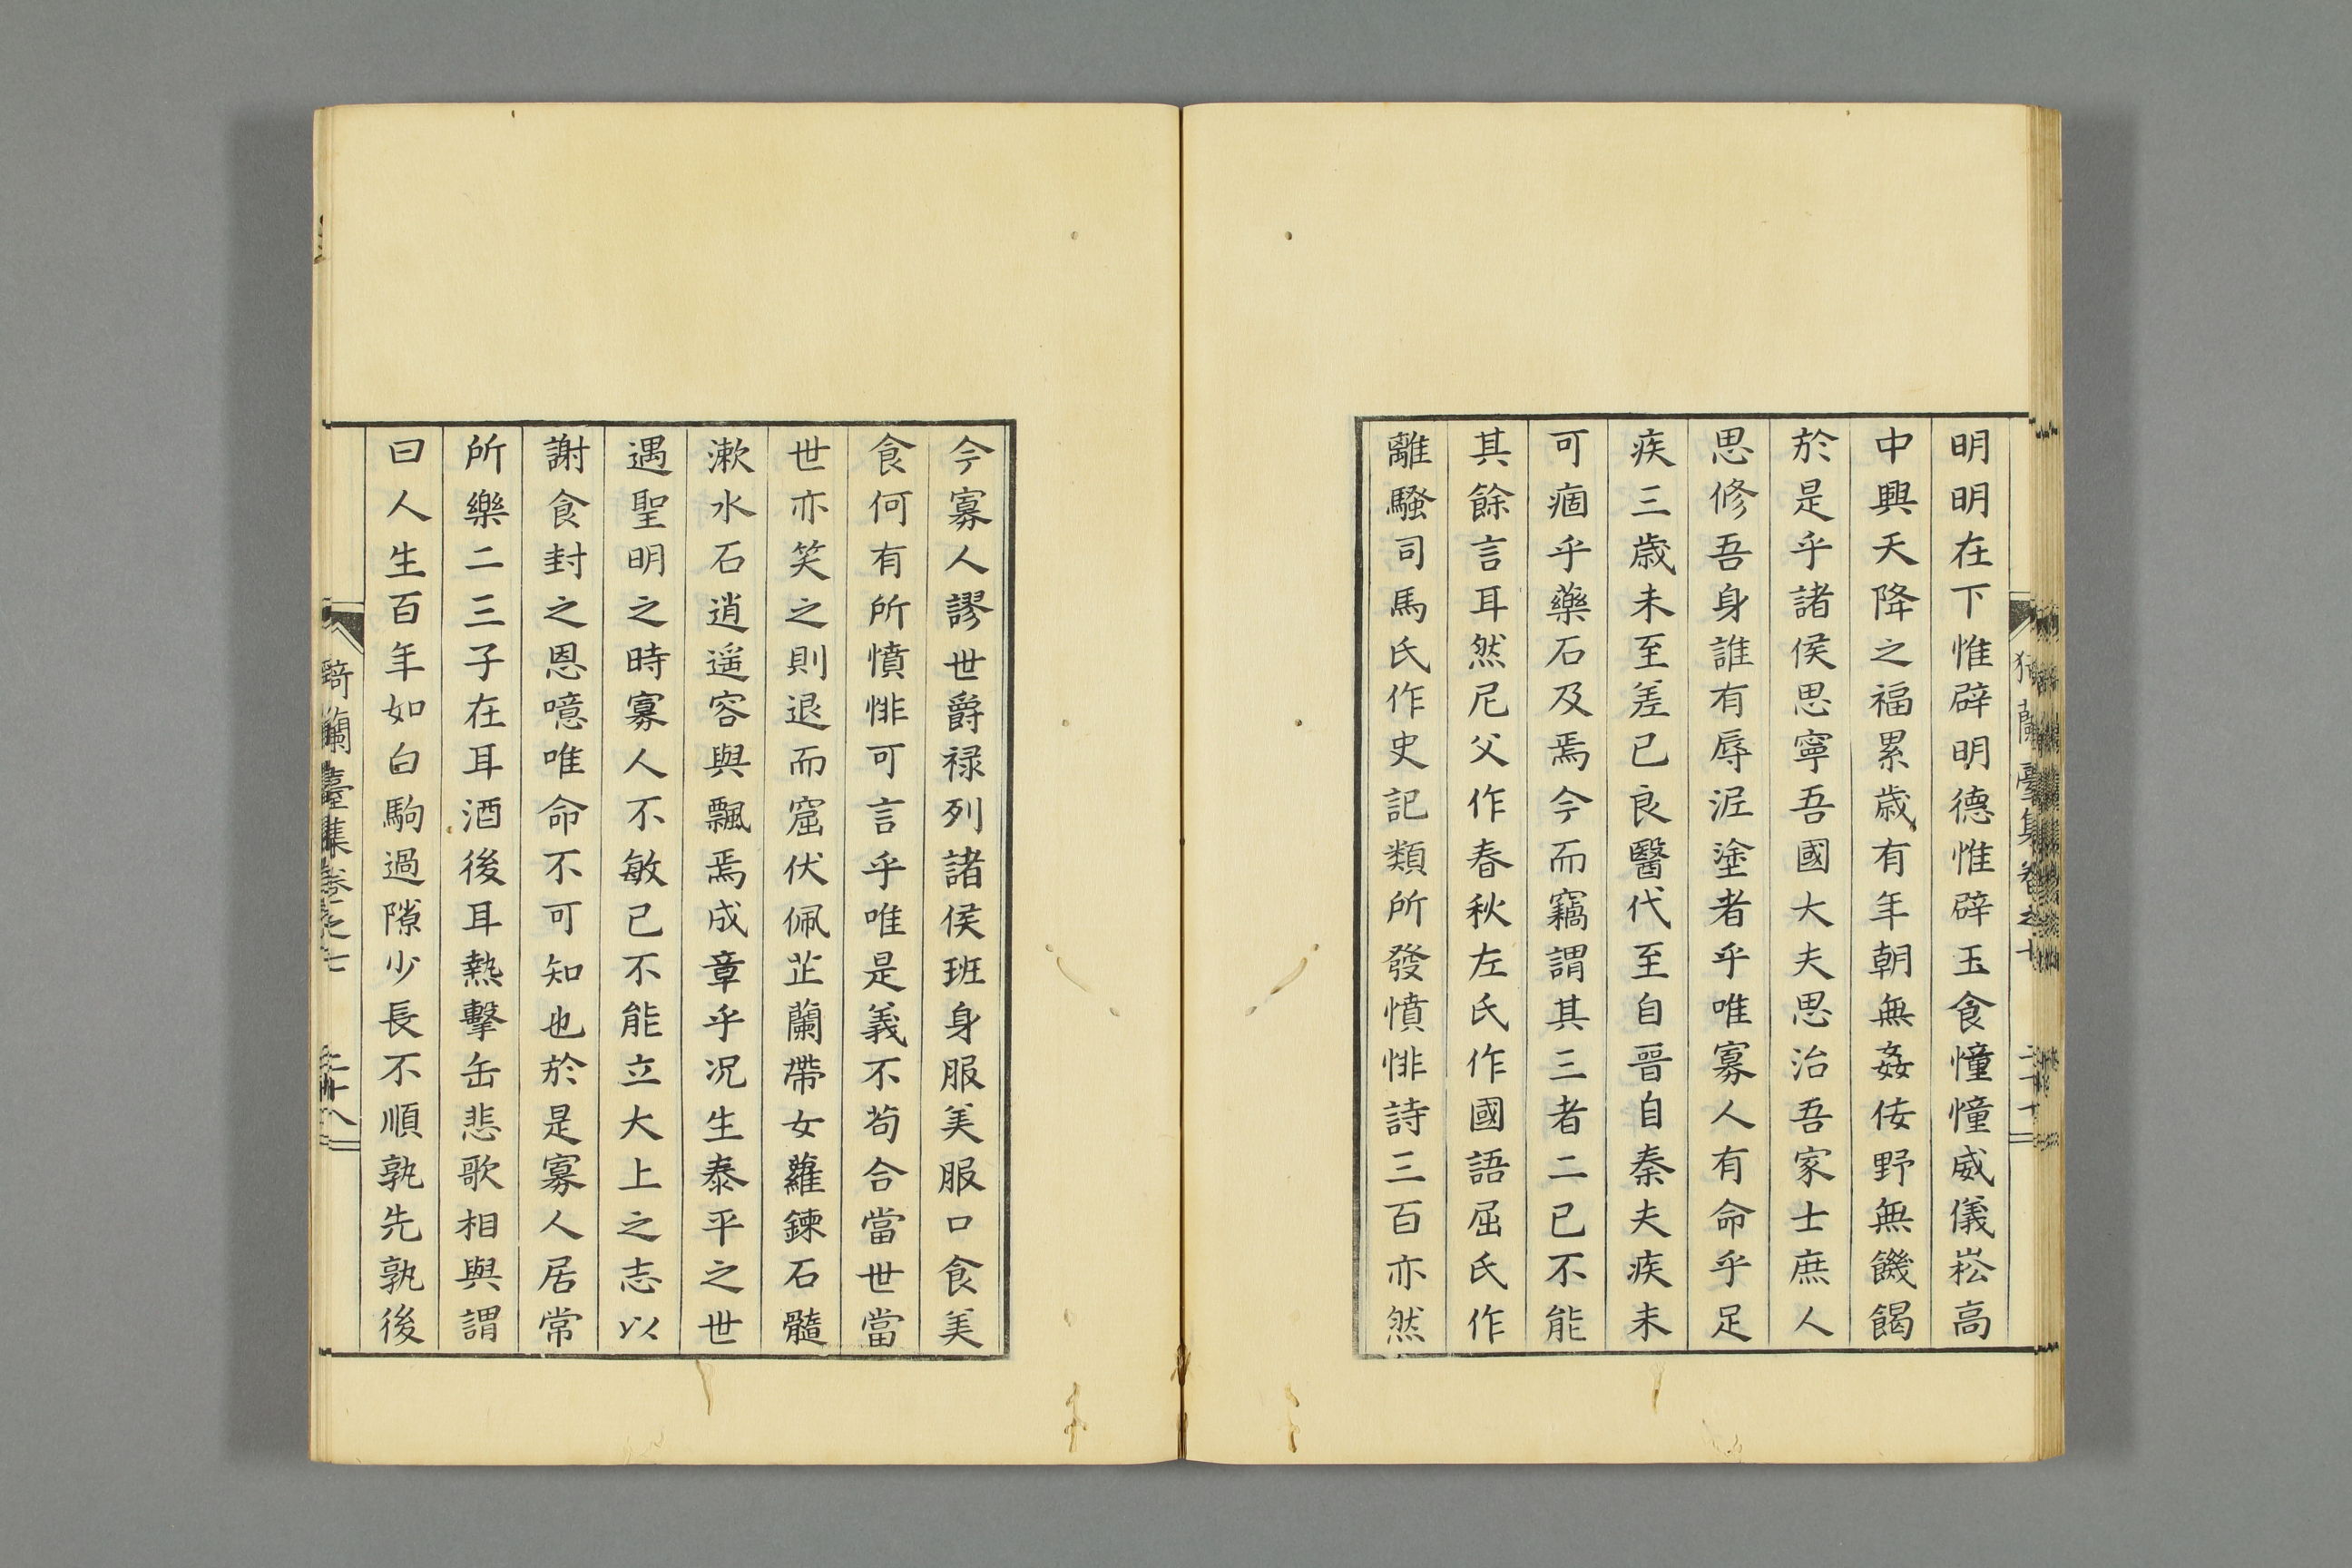 明明在下惟辟明德惟辟玉食憧憧威儀崧高
中興天降之福累歳有年朝無姦佞野無饑餲
於是乎諸侯思寧吾國大夫思治吾家士庶人
思修吾身誰有辱泥塗者乎唯寡人有命乎足
疾三歳未至差已良醫代至自晉自秦夫疾未
可痼乎藥石及焉今而竊謂其三者二已不能
其餘言耳然尼父作春秋左氏作國語屈氏作
離騷司馬氏作史記類所發憤悱詩三百亦然
今寡人謬世爵禄列諸侯班身服美服口食美
食何有所憤悱可言乎唯是義不苟合當世當
世亦笑之則退而窟伏佩芷蘭帶女蘿鍊石髓
漱水石逍遥容與飄焉成章乎况生泰平之世
遇聖明之時寡人不敏已不能立大上之志以
謝食封之恩噫唯命不可知也於是寡人居常
所樂二三子在耳酒後耳熱擊缶悲歌相與謂
曰人生百年如白駒過隙少長不順孰先孰後
蘭臺集卷之七